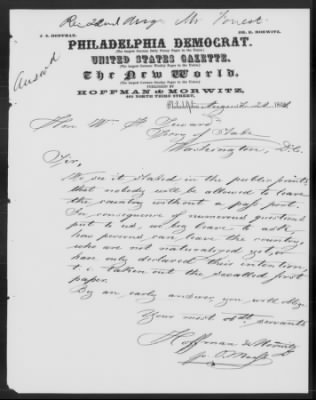 Mr Forrest.
J. S. HOFFMAN.
DR. E. MORWITZ.
PHILADELPHIA DEMOCRAT.
(The largest German Daily Paper in the Union.)
UNITED STATES GAZETTE.
(The largest German Weekly Paper in the Union.)
The New World.
(The largest German Sunday Paper in the Union.)
PUBLISHED BY
HOFFMAN & MORWITZ,
NORTH THIRD STREET,
Answd
Philadelphia, August 2d
Hon. Wm H. Seward
Secry of State
Washington, D.C.
Sir,
We see it stated in the public prints
that nobody will be allowed to leave
the country without a pass port.
In consequence of numerous questions
put to us, we beg leave to ask,
how persons can leave the country,
who are not naturalized yet, or
han only declared their intention,
i. e. taken out the socalled first
paper.
By an early answer you will oblige
Your most obt. servants
Hoffman & Morwitz